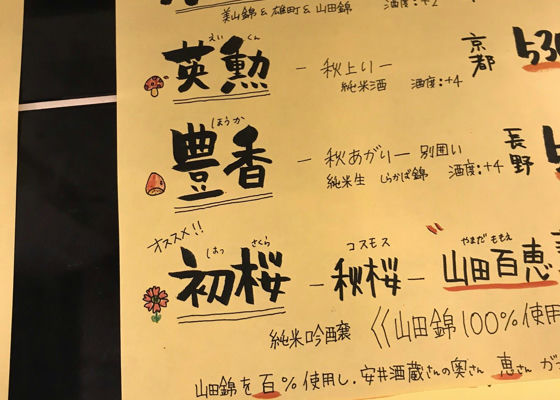 美山錦&雄町&山田錦 酒度:+2
えい くん
英勲 －秋上り－ 京都 530
純米酒 酒度:+4
ほうか
豊香 －秋あがり－ 別囲い 長野
純米生 しらかば錦 酒度:+4
オススメ!!
はつ さくら コスモス やまだ ももえ
初桜 －秋桜－ 山田百恵
純米吟醸 《山田錦100%使用
山田錦を百%使用し、安井酒蔵さんの奥さん 恵さん が